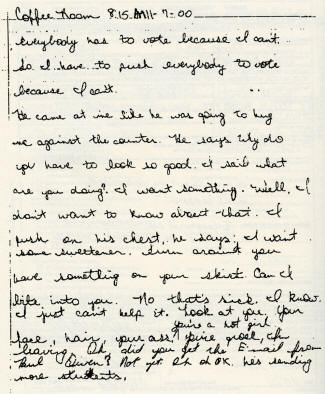 Coffee Room 8:15 AM 7-00
everybody has to vote because I can't.
So I have to push everybody to vote
because I can't.
He came at me like he was going to hug
me against the counter. He says why do
you have to look so good. I said what
are you doing? I want something. Well, I
don't want to know about that. I
push on his chest, he says; I want
some sweetener. Turn around you
have something on your skirt. Can I
bite into you. No that's sick. I know.
I just can't help it. Look at you, your
you're a hot girl
face, hair, your ass! You're good, I'm
leaving. Oh did you get the E-mail from
Paul? Not yet. Oh OK. he's sending
more students,